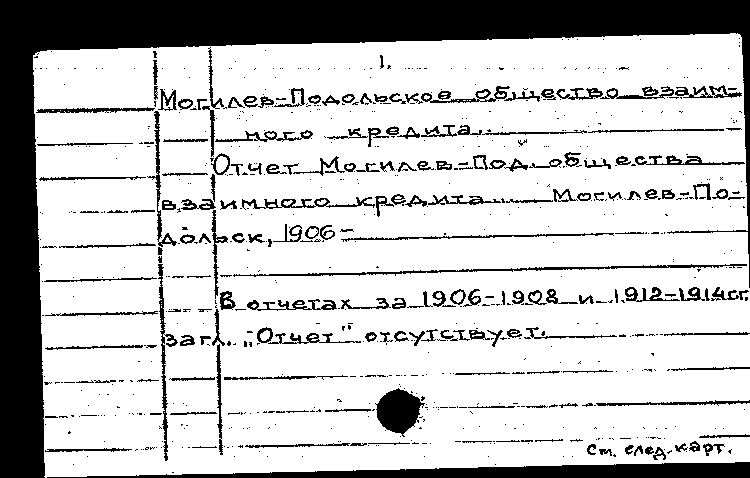 1.
Могилев-Подольское общество взаим-
ного кредита..
Отчет Могилев-Под. общества
взаимного кредита... Могилев-По-
дольск, 1906-
В отчетах за 1906-1908 и 1912-1914гг.
загл. "Отчет" отсутствует.
См. след. карт.